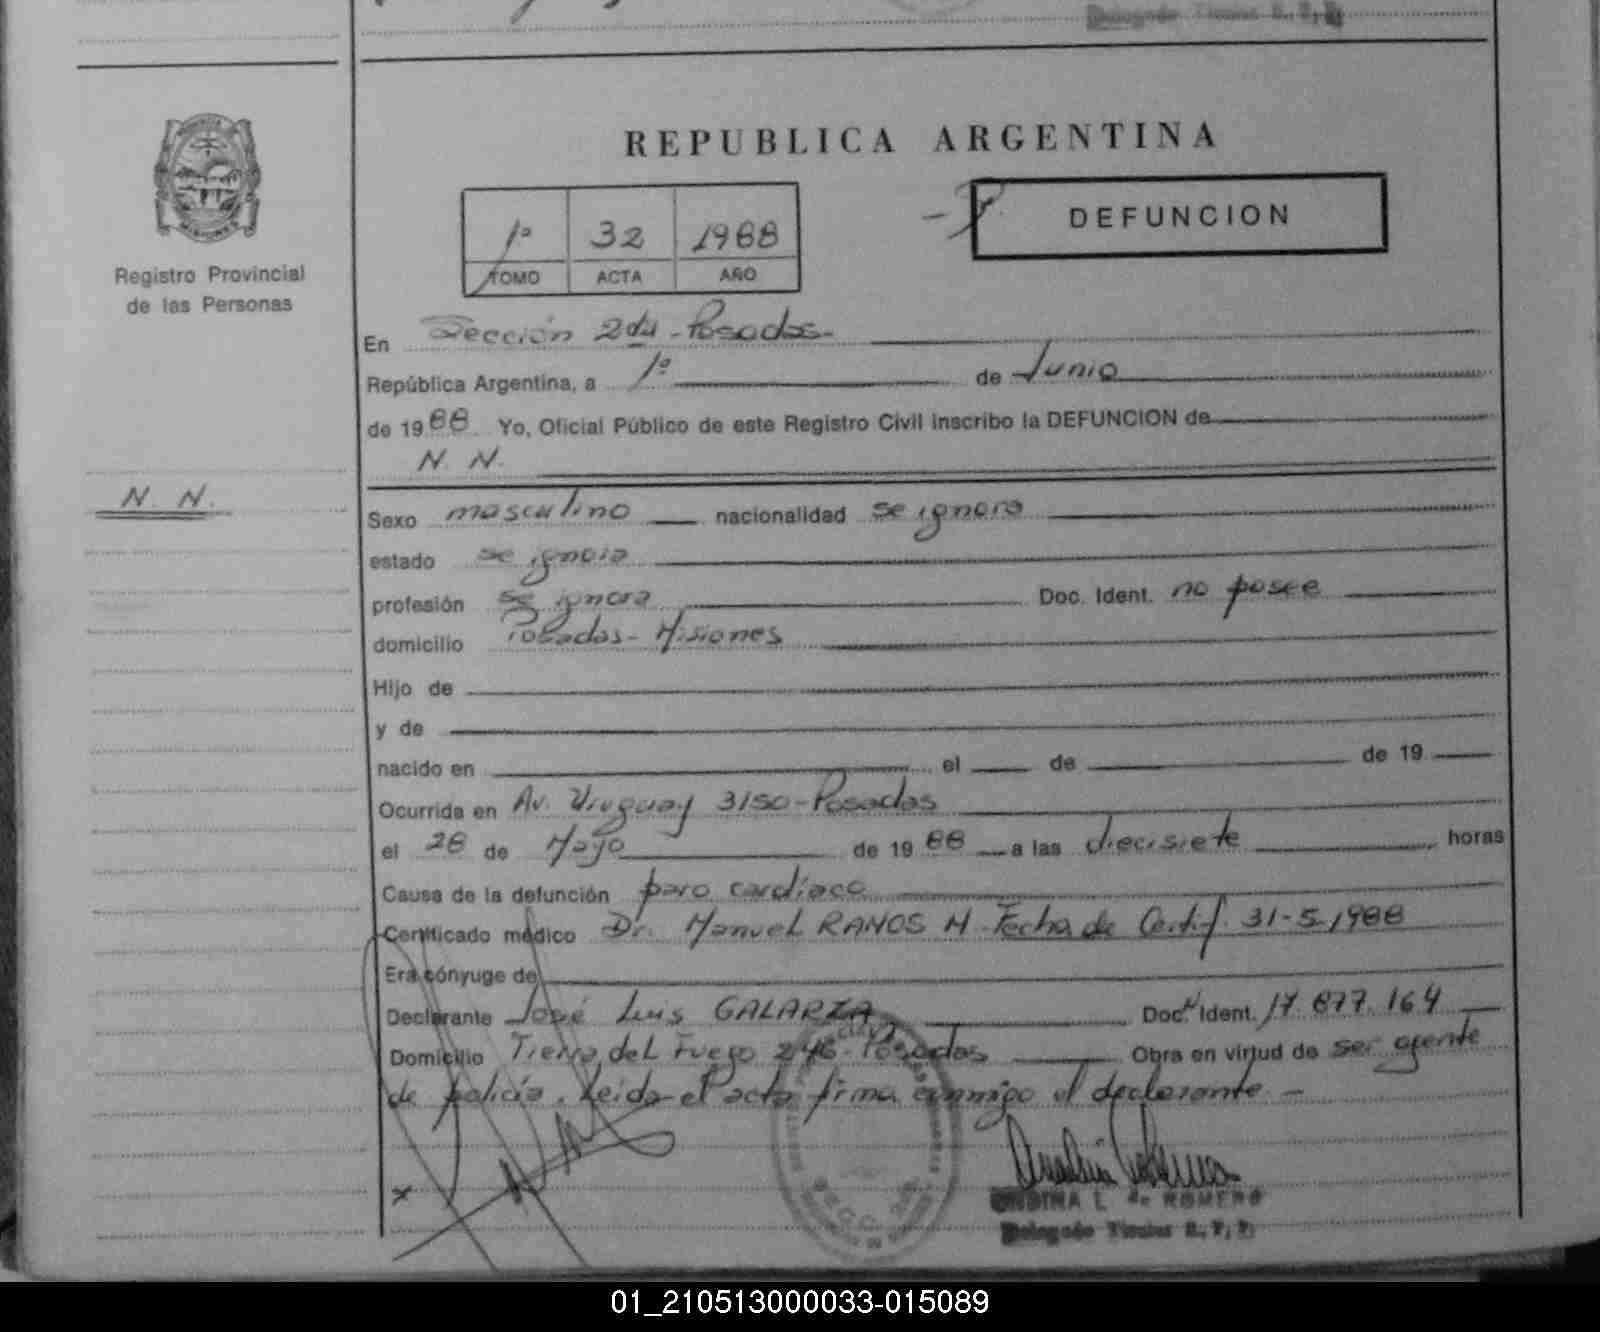 Delegado Titular R. P. P.
REPUBLICA ARGENTINA
Registro Provincial
de las Personas
1º 32 1988
TOMO ACTA AÑO
DEFUNCION
En Sección 2da - Posadas-
República Argentina, a 1º de Junio
de 1988 Yo, Oficial Público de este Registro Civil inscribo la DEFUNCION de
N. N.
N. N.
Sexo masculino nacionalidad se ignora
estado se ignora
profesión se ignora Doc. Ident. no posee
domicilio Posadas- Misiones
Hijo de
y de
nacido en el de de 19
Ocurrida en Av. Uruguay 3150-Posadas
el 28 de Mayo de 1988 a las diecisiete horas
Causa de la defunción paro cardíaco
Certificado médico Dr. Manuel RAMOS M - Fecha de Certif. 31-5-1988
Era cónyuge de
Declarante José Luis GALARZA Doc. Ident. 17.877.164
Domicilio Tierra del Fuego 246- Posadas Obra en virtud de ser agente
de policía. Leída el acta firma conmigo el declarante.-
L. de ROMERO
Delegado Titular R. P. P.
01_210513000033-015089